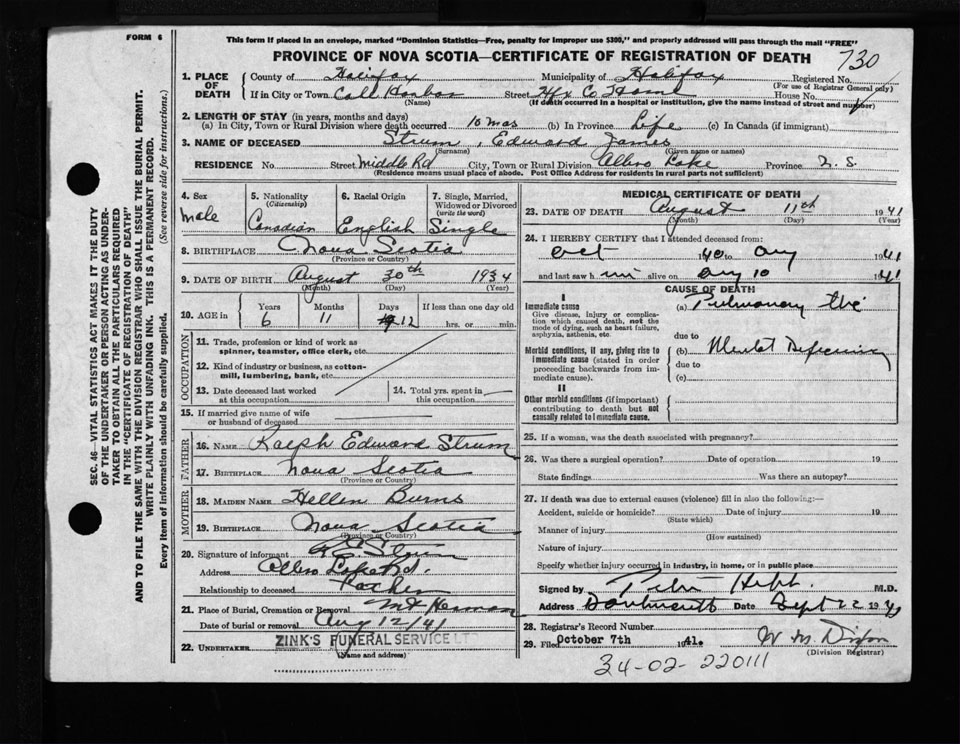 FORM 6
This form if placed in an envelope, marked "Dominion Statistics—Free, penalty for improper use $300," and properly addressed will pass through the mail "FREE"
PROVINCE OF NOVA SCOTIA—CERTIFICATE OF REGISTRATION OF DEATH 730
1. PLACE OF DEATH
County of Halifax Municipality of Halifax Registered No.
(For use of Registrar General only)
If in City or Town Cole Harbor Street Hfx Co Home House No.
(Name) (If death occurred in a hospital or institution, give the name instead of street and number)
2. LENGTH OF STAY (in years, months and days)
(a) In City, Town or Rural Division where death occurred 10 mos (b) In Province Life (c) In Canada (if immigrant)
3. NAME OF DECEASED Strum, Edward James
(Surname) (Given name or names)
RESIDENCE No. Street Middle Rd City, Town or Rural Division Albro Lake Province N.S.
(Residence means usual place of abode. Post Office Address for residents in rural parts not sufficient)
4. Sex
male
5. Nationality
(Citizenship)
Canadian
6. Racial Origin
English
7. Single, Married, Widowed or Divorced
(write the word)
Single
8. BIRTHPLACE Nova Scotia
(Province or Country)
9. DATE OF BIRTH August 30th 1934
(Month) (Day) (Year)
10. AGE in
Years Months Days If less than one day old
6 11 12 hrs. or min.
OCCUPATION
11. Trade, profession or kind of work as spinner, teamster, office clerk, etc.
12. Kind of industry or business, as cotton-mill, lumbering, bank, etc.
13. Date deceased last worked at this occupation
14. Total yrs. spent in this occupation
15. If married give name of wife or husband of deceased
FATHER
16. NAME Ralph Edward Strum
17. BIRTHPLACE Nova Scotia
(Province or Country)
MOTHER
18. MAIDEN NAME Hellen Burns
19. BIRTHPLACE Nova Scotia
(Province or Country)
20. Signature of informant R E Strum
Address Albro Lake Rd.
Relationship to deceased Father
21. Place of Burial, Cremation or Removal Mt Herman
Date of burial or removal Aug 12/41
22. UNDERTAKER ZINK'S FUNERAL SERVICE LTD
(Name and address)
MEDICAL CERTIFICATE OF DEATH
23. DATE OF DEATH August 11th 1941
(Month) (Day) (Year)
24. I HEREBY CERTIFY that I attended deceased from:
Oct 1940 to Aug 1941
and last saw him alive on Aug 10 1941
CAUSE OF DEATH
I
Immediate cause
Give disease, injury or complication which caused death, not the mode of dying, such as heart failure, asphyxia, asthenia, etc.
(a) Pulmonary tbc
due to
Morbid conditions, if any, giving rise to immediate cause (stated in order proceeding backwards from immediate cause).
(b) Mental Deficiency
due to
(c)
II
Other morbid conditions (if important) contributing to death but not causally related to immediate cause.
25. If a woman, was the death associated with pregnancy?
26. Was there a surgical operation? Date of operation 19
State findings Was there an autopsy?
27. If death was due to external causes (violence) fill in also the following:—
Accident, suicide or homicide? Date of injury 19
(State which)
Manner of injury
(How sustained)
Nature of injury
Specify whether injury occurred in industry, in home, or in public place
Signed by M.D.
Address Dartmouth Date Sept 22 19
28. Registrar's Record Number
29. Filed October 7th 1941. W M Dixon
(Division Registrar)
34-02-220111
SEC. 46—VITAL STATISTICS ACT MAKES IT THE DUTY
OF THE UNDERTAKER OR PERSON ACTING AS UNDER-
TAKER TO OBTAIN ALL THE PARTICULARS REQUIRED
IN THE "CERTIFICATE OF REGISTRATION OF DEATH"
AND TO FILE THE SAME WITH THE DIVISION REGISTRAR WHO SHALL ISSUE THE BURIAL PERMIT.
WRITE PLAINLY WITH UNFADING INK. THIS IS A PERMANENT RECORD.
Every item of information should be carefully supplied. (See reverse side for instructions.)